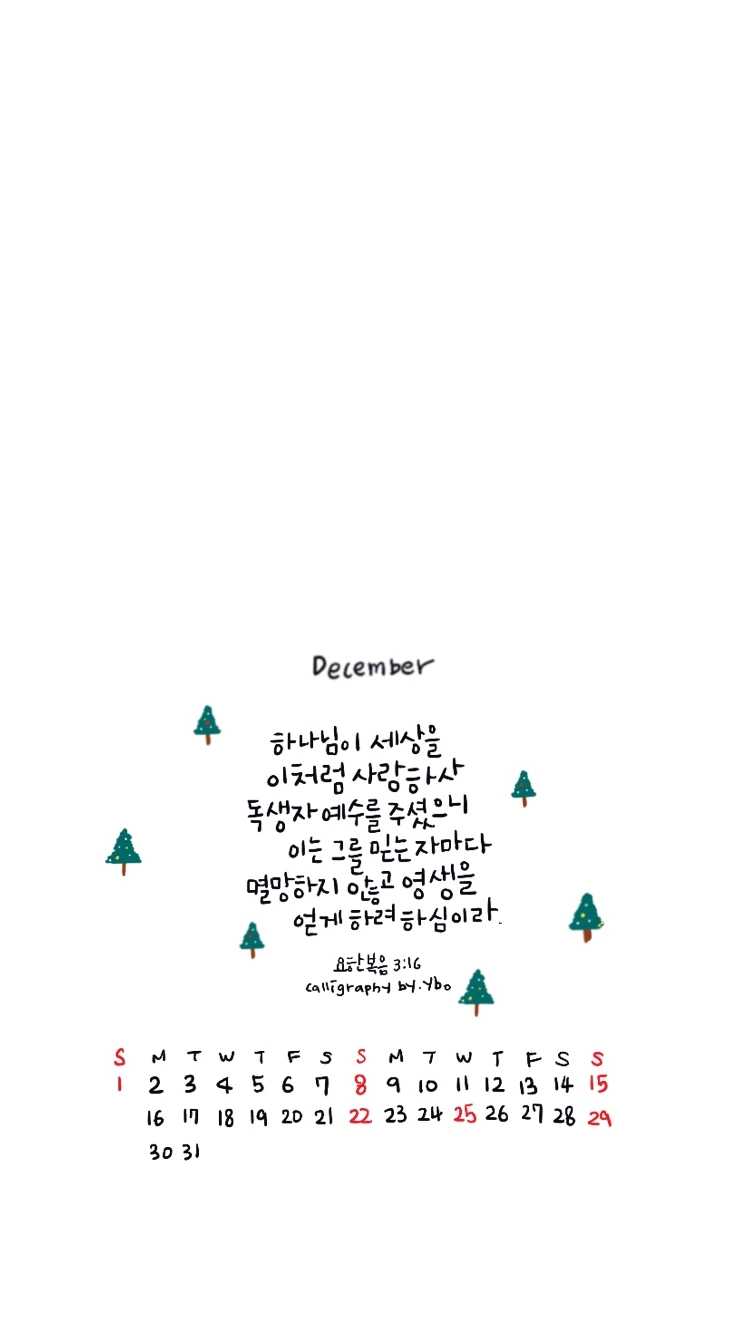 December
하나님이 세상을
이처럼 사랑하사
독생자 예수를 주셨으니
이는 그를 믿는 자마다
멸망하지 않고 영생을
얻게 하려 하심이라.
요한복음 3:16
calligraphy by.ybo
S M T W T F S S M T W T F S S
1 2 3 4 5 6 7 8 9 10 11 12 13 14 15
16 17 18 19 20 21 22 23 24 25 26 27 28 29
30 31